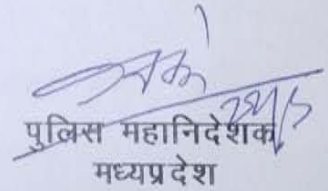 पुलिस महानिदेशक
मध्यप्रदेश